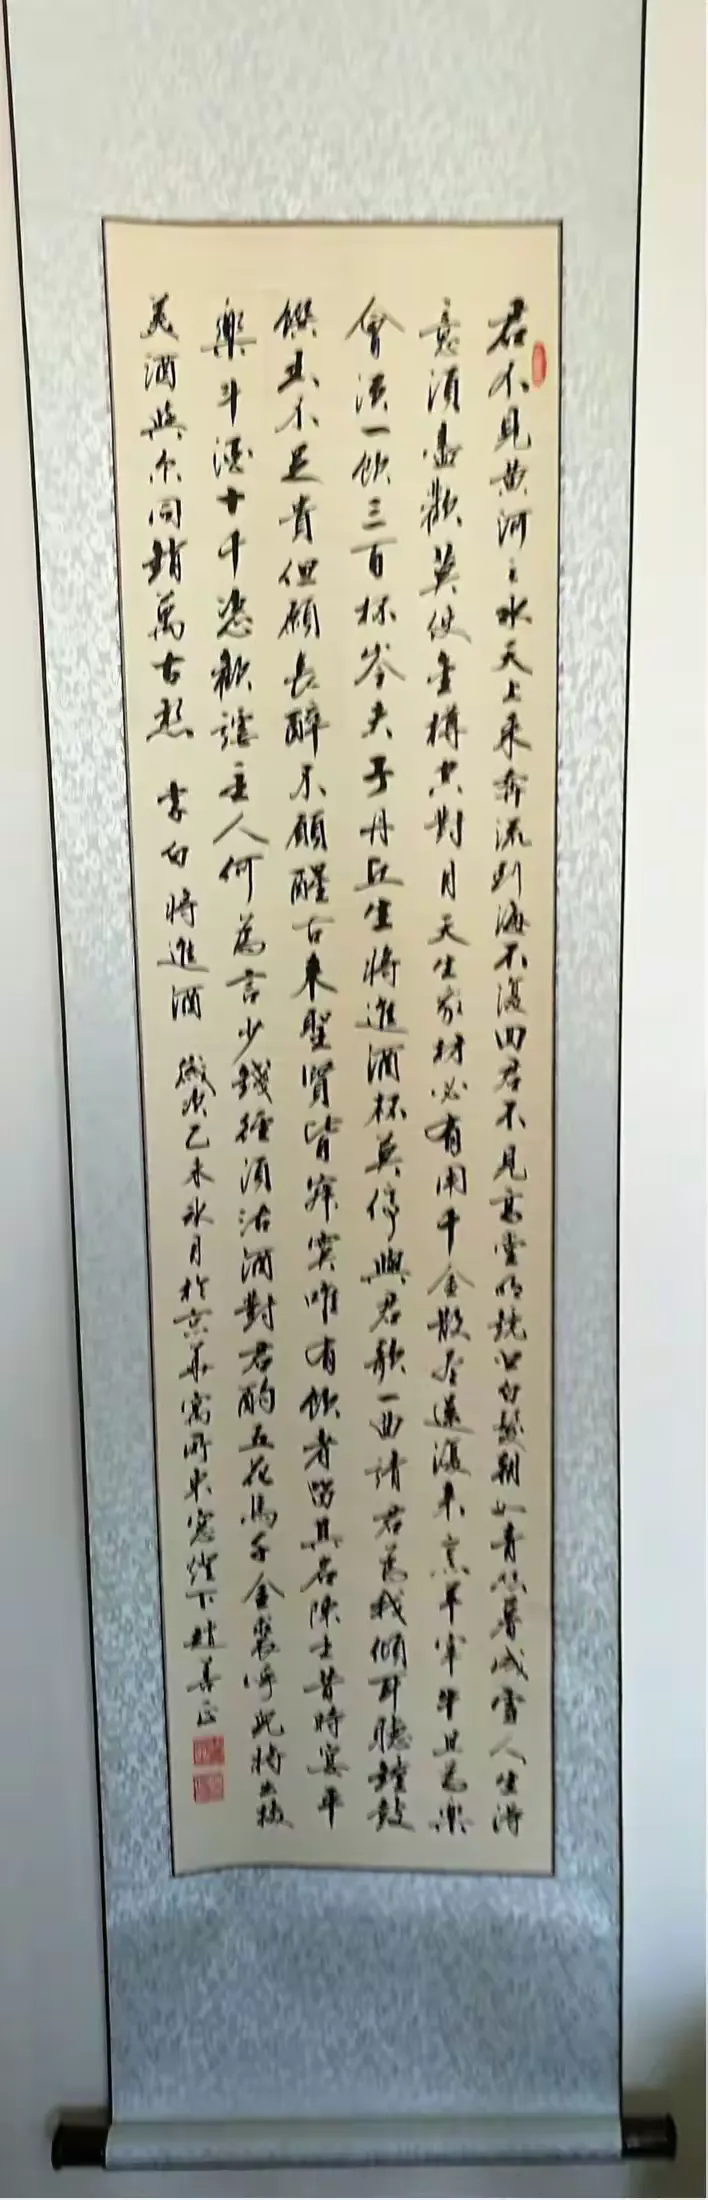 君不見黄河之水天上来奔流到海不復回君不見高堂明鏡悲白髮朝如青絲暮成雪人生得
意須盡歡莫使金樽空對月天生我材必有用千金散盡還復来烹羊宰牛且為樂
會須一飲三百杯岑夫子丹丘生將進酒杯莫停與君歌一曲請君為我傾耳聽鐘鼓
饌玉不足貴但願長醉不願醒古来聖賢皆寂寞唯有飲者留其名陳王昔時宴平
樂斗酒十千恣歡謔主人何為言少錢徑須沽酒對君酌五花馬千金裘呼兒將出換
美酒與尔同銷萬古愁 李白將進酒 歲次乙未冰月於京華寓所東窓燈下趙善正